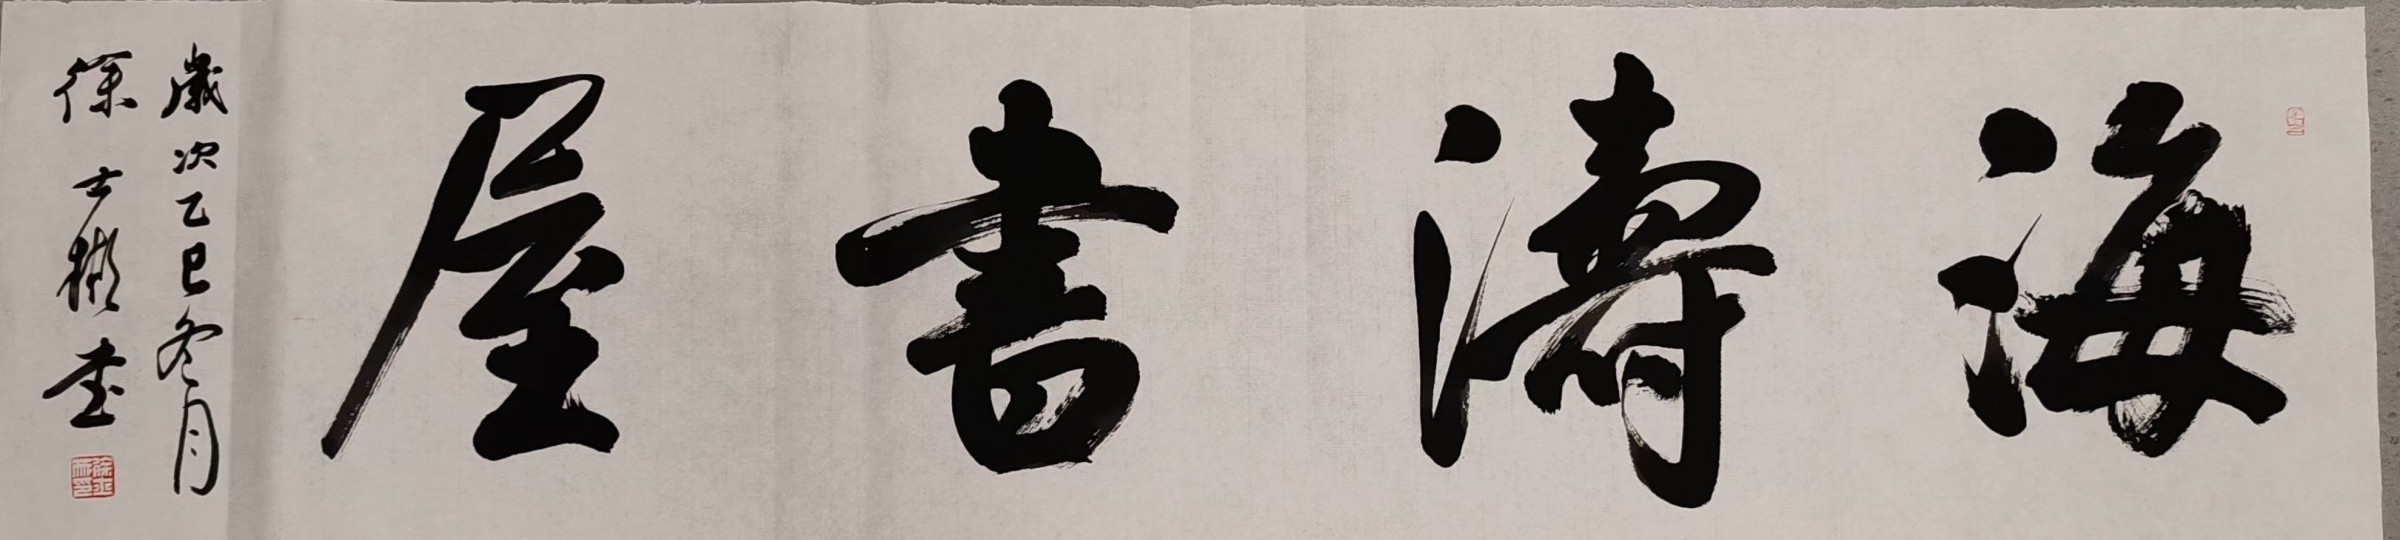 海濤書屋
歲次乙巳冬月
徐士彬書